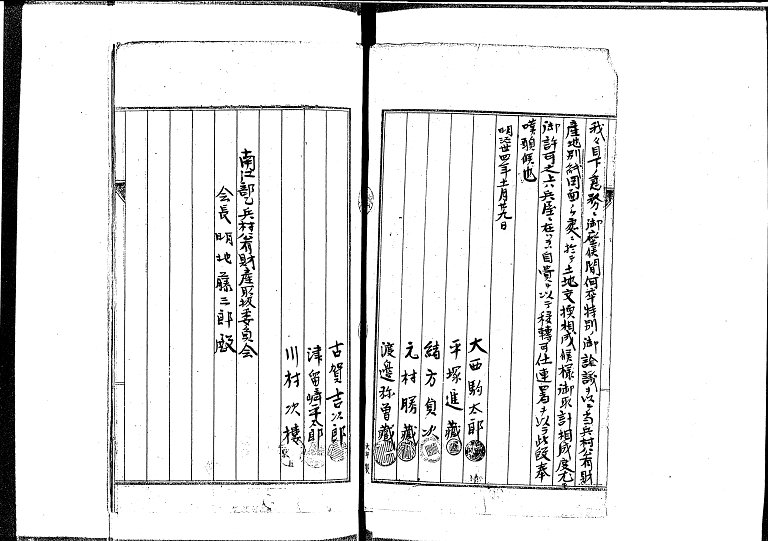 我々目下ノ急務ニ御座候間何卒特別ノ御詮議ヲ以テ当兵村公有財
産地別紙図面ノ処ニ於テ土地交換相成候様御取計相成度尤モ
御許可之上ハ兵屋ニ在ハ自費ヲ以テ移轉可仕連署ヲ以テ此段奉
嘆願候也
明治廿四年十一月廿九日
大西駒太郎
平塚進藏
緒方貞次
元村勝藏
渡邊弥曽藏
古賀吉次郎
津留﨑平太郎
川村次樓
南江部乙兵村公有財産取扱委員会
会長 明地藤三郎殿